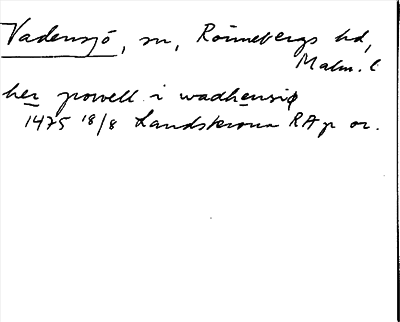 Vadensjö, sn, Rönnebergs hd,
Malm. l
her powell i wadhensiø
1475 18/8 Landskrona RAp or.